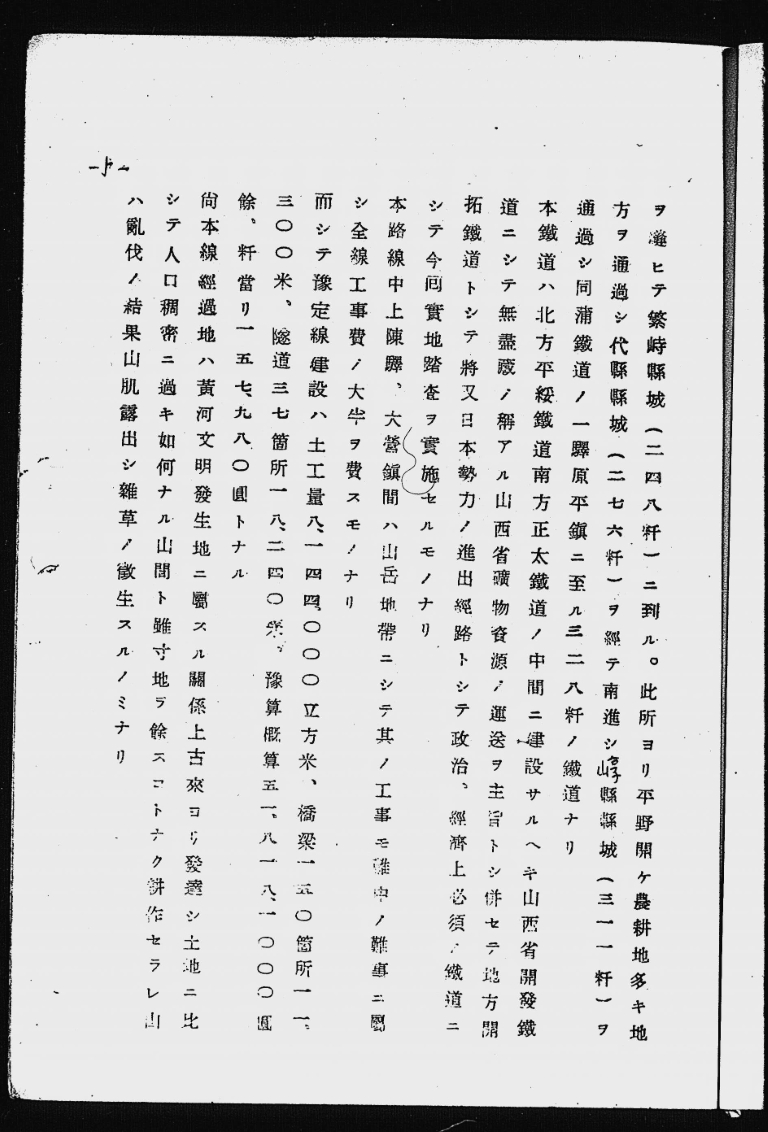 ヲ ヒテ繁峙縣城(二四八粁)ニ到ル。此所ヨリ平野開ケ農耕地多キ地
方ヲ通過シ代縣縣城(二七六粁)ヲ經テ南進シ崞縣縣城(三一一粁)ヲ
通過シ同蒲鐵道ノ一驛原平鎭ニ至ル三二八粁ノ鐵道ナリ
本鐵道ハ北方平綏鐵道南方正太鐵道ノ中間ニ建設サルヘキ山西省開發鐵
道ニシテ無盡藏ノ稱アル山西省礦物資源ノ運送ヲ主旨トシ併セテ地方開
拓鐵道トシテ將又日本勢力ノ進出經路トシテ政治、經濟上必須ノ鐵道ニ
シテ今囘實地踏査ヲ實施セルモノナリ
本路線中上陳驛、大營鎭間ハ山岳地帶ニシテ其ノ工事モ難中ノ難事ニ屬
シ全線工事費ノ大半ヲ費スモノナリ
而シテ豫定線建設ハ土工量八、一四四、〇〇〇立方米、橋梁一五〇箇所一一、
三〇〇米、隧道三七箇所一八、二四〇米、豫算概算五一、八一八、一〇〇〇圓
餘、粁當リ一五七、九八〇圓トナル
尙本線經過地ハ黃河文明發生地ニ屬スル關係上古來ヨリ發達シ土地ニ比
シテ人口稠密ニ過キ如何ナル山間ト雖寸地ヲ餘スコトナク耕作セラレ山
ハ亂伐ノ結果山肌露出シ雜草ノ徵生スルノミナリ